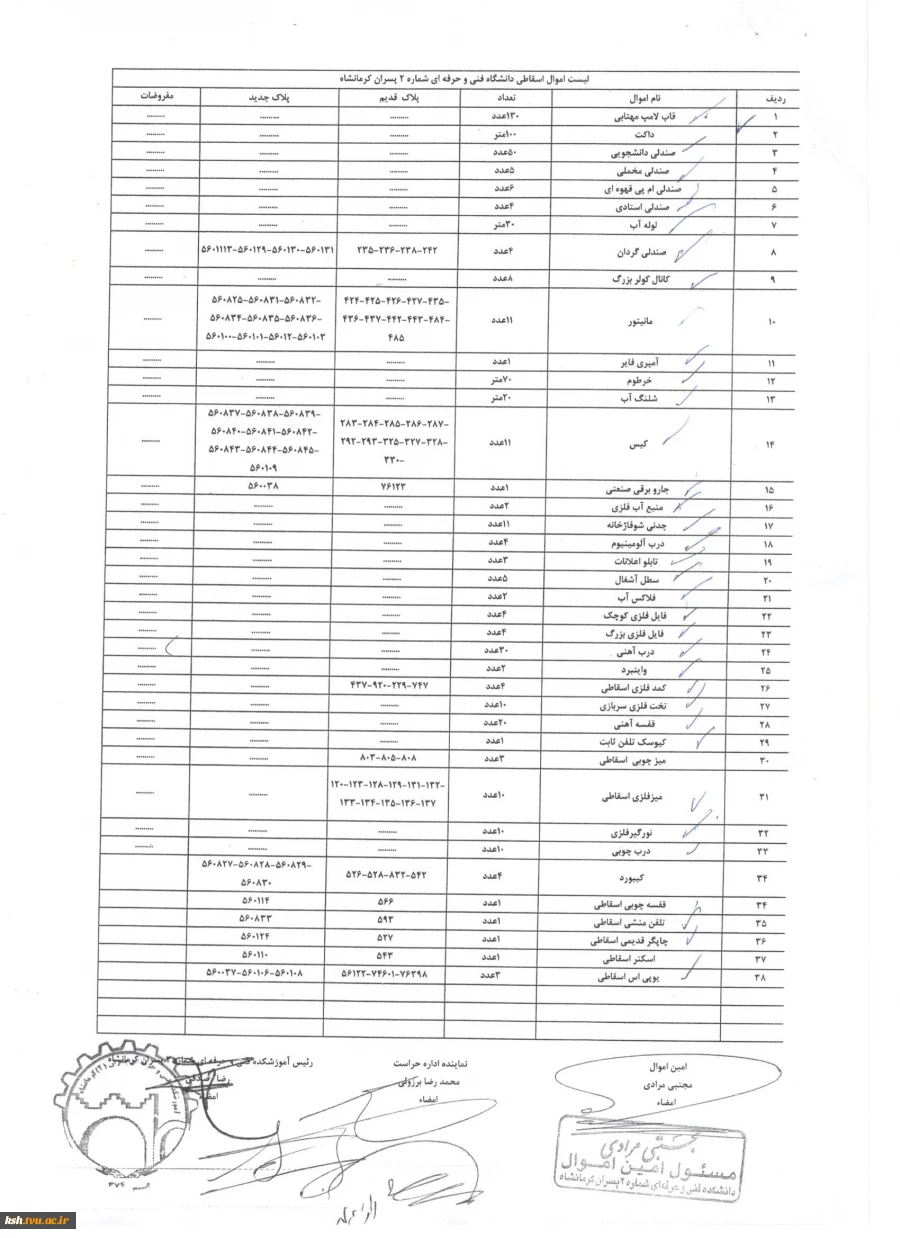 لیست اموال اسقاطی دانشگاه فنی و حرفه ای شماره ۲ پسران کرمانشاه
ردیف نام اموال تعداد پلاک قدیم پلاک جدید مفروضات
۱ قاب لامپ مهتابی ۱۳۰عدد ......... ......... .........
۲ داکت ۱۰۰متر ......... ......... .........
۳ صندلی دانشجویی ۵۰عدد ......... ......... .........
۴ صندلی مخملی ۵عدد ......... ......... .........
۵ صندلی ام پی قهوه ای ۶عدد ......... ......... .........
۶ صندلی استادی ۴عدد ......... ......... .........
۷ لوله آب ۳۰متر ......... ......... .........
۸ صندلی گردان ۴عدد ۲۳۵-۲۳۶-۲۳۸-۲۴۲ ۵۶۰۱۱۱۳-۵۶۰۱۲۹-۵۶۰۱۳۰-۵۶۰۱۳۱ .........
۹ کانال کولر بزرگ ۸عدد ......... ......... .........
۱۰ مانیتور ۱۱عدد ۴۲۴-۴۲۵-۴۲۶-۴۲۷-۴۳۵- ۵۶۰۸۲۵-۵۶۰۸۳۱-۵۶۰۸۳۲- .........
۴۳۶-۴۳۷-۴۴۲-۴۴۳-۴۸۴- ۵۶۰۸۳۴-۵۶۰۸۳۵-۵۶۰۸۳۶-
۴۸۵ ۵۶۰۱۰۰-۵۶۰۱۰۱-۵۶۰۱۲-۵۶۰۱۰۳
۱۱ آمپری فایر ۱عدد ......... ......... .........
۱۲ خرطوم ۷۰متر ......... ......... .........
۱۳ شلنگ آب ۲۰متر ......... ......... .........
۱۴ کیس ۱۱عدد ۲۸۳-۲۸۴-۲۸۵-۲۸۶-۲۸۷- ۵۶۰۸۳۷-۵۶۰۸۳۸-۵۶۰۸۳۹- .........
۲۹۲-۲۹۳-۳۲۵-۳۲۷-۳۲۸- ۵۶۰۸۴۰-۵۶۰۸۴۱-۵۶۰۸۴۲-
۳۳۰- ۵۶۰۸۴۳-۵۶۰۸۴۴-۵۶۰۸۴۵-
۵۶۰۱۰۹
۱۵ جارو برقی صنعتی ۱عدد ۷۶۱۲۳ ۵۶۰۰۳۸ .........
۱۶ منبع آب فلزی ۲عدد ......... ......... .........
۱۷ چدنی شوفاژخانه ۱۱عدد ......... ......... .........
۱۸ درب آلومینیوم ۴عدد ......... ......... .........
۱۹ تابلو اعلانات ۳عدد ......... ......... .........
۲۰ سطل آشغال ۵عدد ......... ......... .........
۲۱ فلاکس آب ۲عدد ......... ......... .........
۲۲ فایل فلزی کوچک ۴عدد ......... ......... .........
۲۳ فایل فلزی بزرگ ۴عدد ......... ......... .........
۲۴ درب آهنی ۳۰عدد ......... ......... .........
۲۵ وایتبرد ۲عدد ......... ......... .........
۲۶ کمد فلزی اسقاطی ۴عدد ۴۳۷-۹۲۰-۲۲۹-۷۴۷ ......... .........
۲۷ تخت فلزی سربازی ۱۰عدد ......... ......... .........
۲۸ قفسه آهنی ۲۰عدد ......... ......... .........
۲۹ کیوسک تلفن ثابت ۱عدد ......... ......... .........
۳۰ میز چوبی اسقاطی ۳عدد ۸۰۳-۸۰۵-۸۰۸ ......... .........
۳۱ میزفلزی اسقاطی ۱۰عدد ۱۲۰-۱۲۳-۱۲۸-۱۲۹-۱۳۱-۱۳۲- ......... .........
۱۳۳-۱۳۴-۱۳۵-۱۳۶-۱۳۷
۳۲ نورگیرفلزی ۱۰عدد ......... ......... .........
۳۳ درب چوبی ۱۰عدد ......... ......... .........
۳۴ کیبورد ۴عدد ۵۲۶-۵۲۸-۸۳۲-۵۴۲ ۵۶۰۸۲۷-۵۶۰۸۲۸-۵۶۰۸۲۹-
۵۶۰۸۳۰
۳۴ قفسه چوبی اسقاطی ۱عدد ۵۶۶ ۵۶۰۱۱۴
۳۵ تلفن منشی اسقاطی ۱عدد ۵۹۳ ۵۶۰۸۳۳
۳۶ چاپگر قدیمی اسقاطی ۱عدد ۵۲۷ ۵۶۰۱۲۴
۳۷ اسکنر اسقاطی ۱عدد ۵۴۳ ۵۶۰۱۱۰
۳۸ یوپی اس اسقاطی ۳عدد ۵۶۱۲۲-۷۴۶۰۱-۷۶۳۹۸ ۵۶۰۰۳۷-۵۶۰۱۰۶-۵۶۰۱۰۸
امین اموال نماینده اداره حراست رئیس آموزشکده فنی و حرفه ای شماره ۲ پسران کرمانشاه
مجتبی مرادی محمد رضا برزوئی رضا صادقی
امضاء امضاء امضاء
مجتبی مرادی
مسئول امین اموال
دانشکده فنی و حرفه ای شماره ۲ پسران کرمانشاه
ksh.tvu.ac.ir